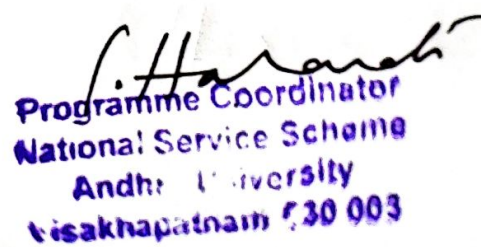 Programme Coordinator
National Service Scheme
Andhra University
Visakhapatnam 530 003